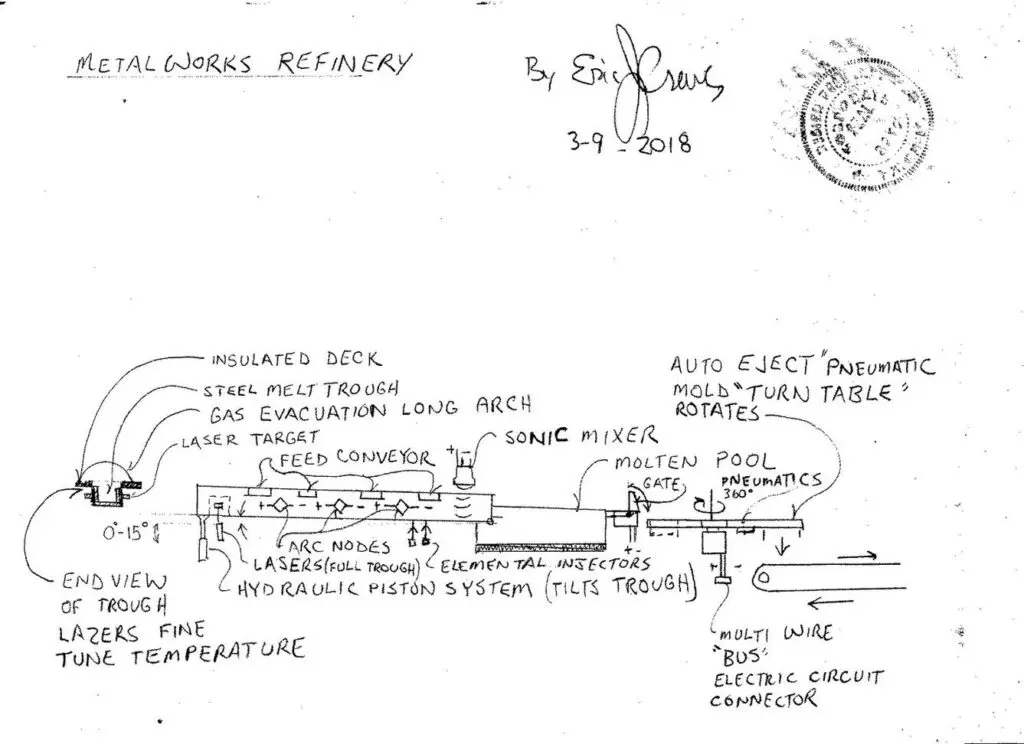 METALWORKS REFINERY
By Eric J
3-9-2018
INSULATED DECK
STEEL MELT TROUGH
GAS EVACUATION LONG ARCH
LASER TARGET
FEED CONVEYOR
+ -
SONIC MIXER
MOLTEN POOL
GATE
AUTO EJECT "PNEUMATIC
MOLD "TURN TABLE"
ROTATES
PNEUMATICS
360°
0°-15°
ARC NODES
LASERS (FULL TROUGH)
ELEMENTAL INJECTORS
HYDRAULIC PISTON SYSTEM (TILTS TROUGH)
END VIEW
OF TROUGH
LAZERS FINE
TUNE TEMPERATURE
MULTI WIRE
"BUS"
ELECTRIC CIRCUIT
CONNECTOR